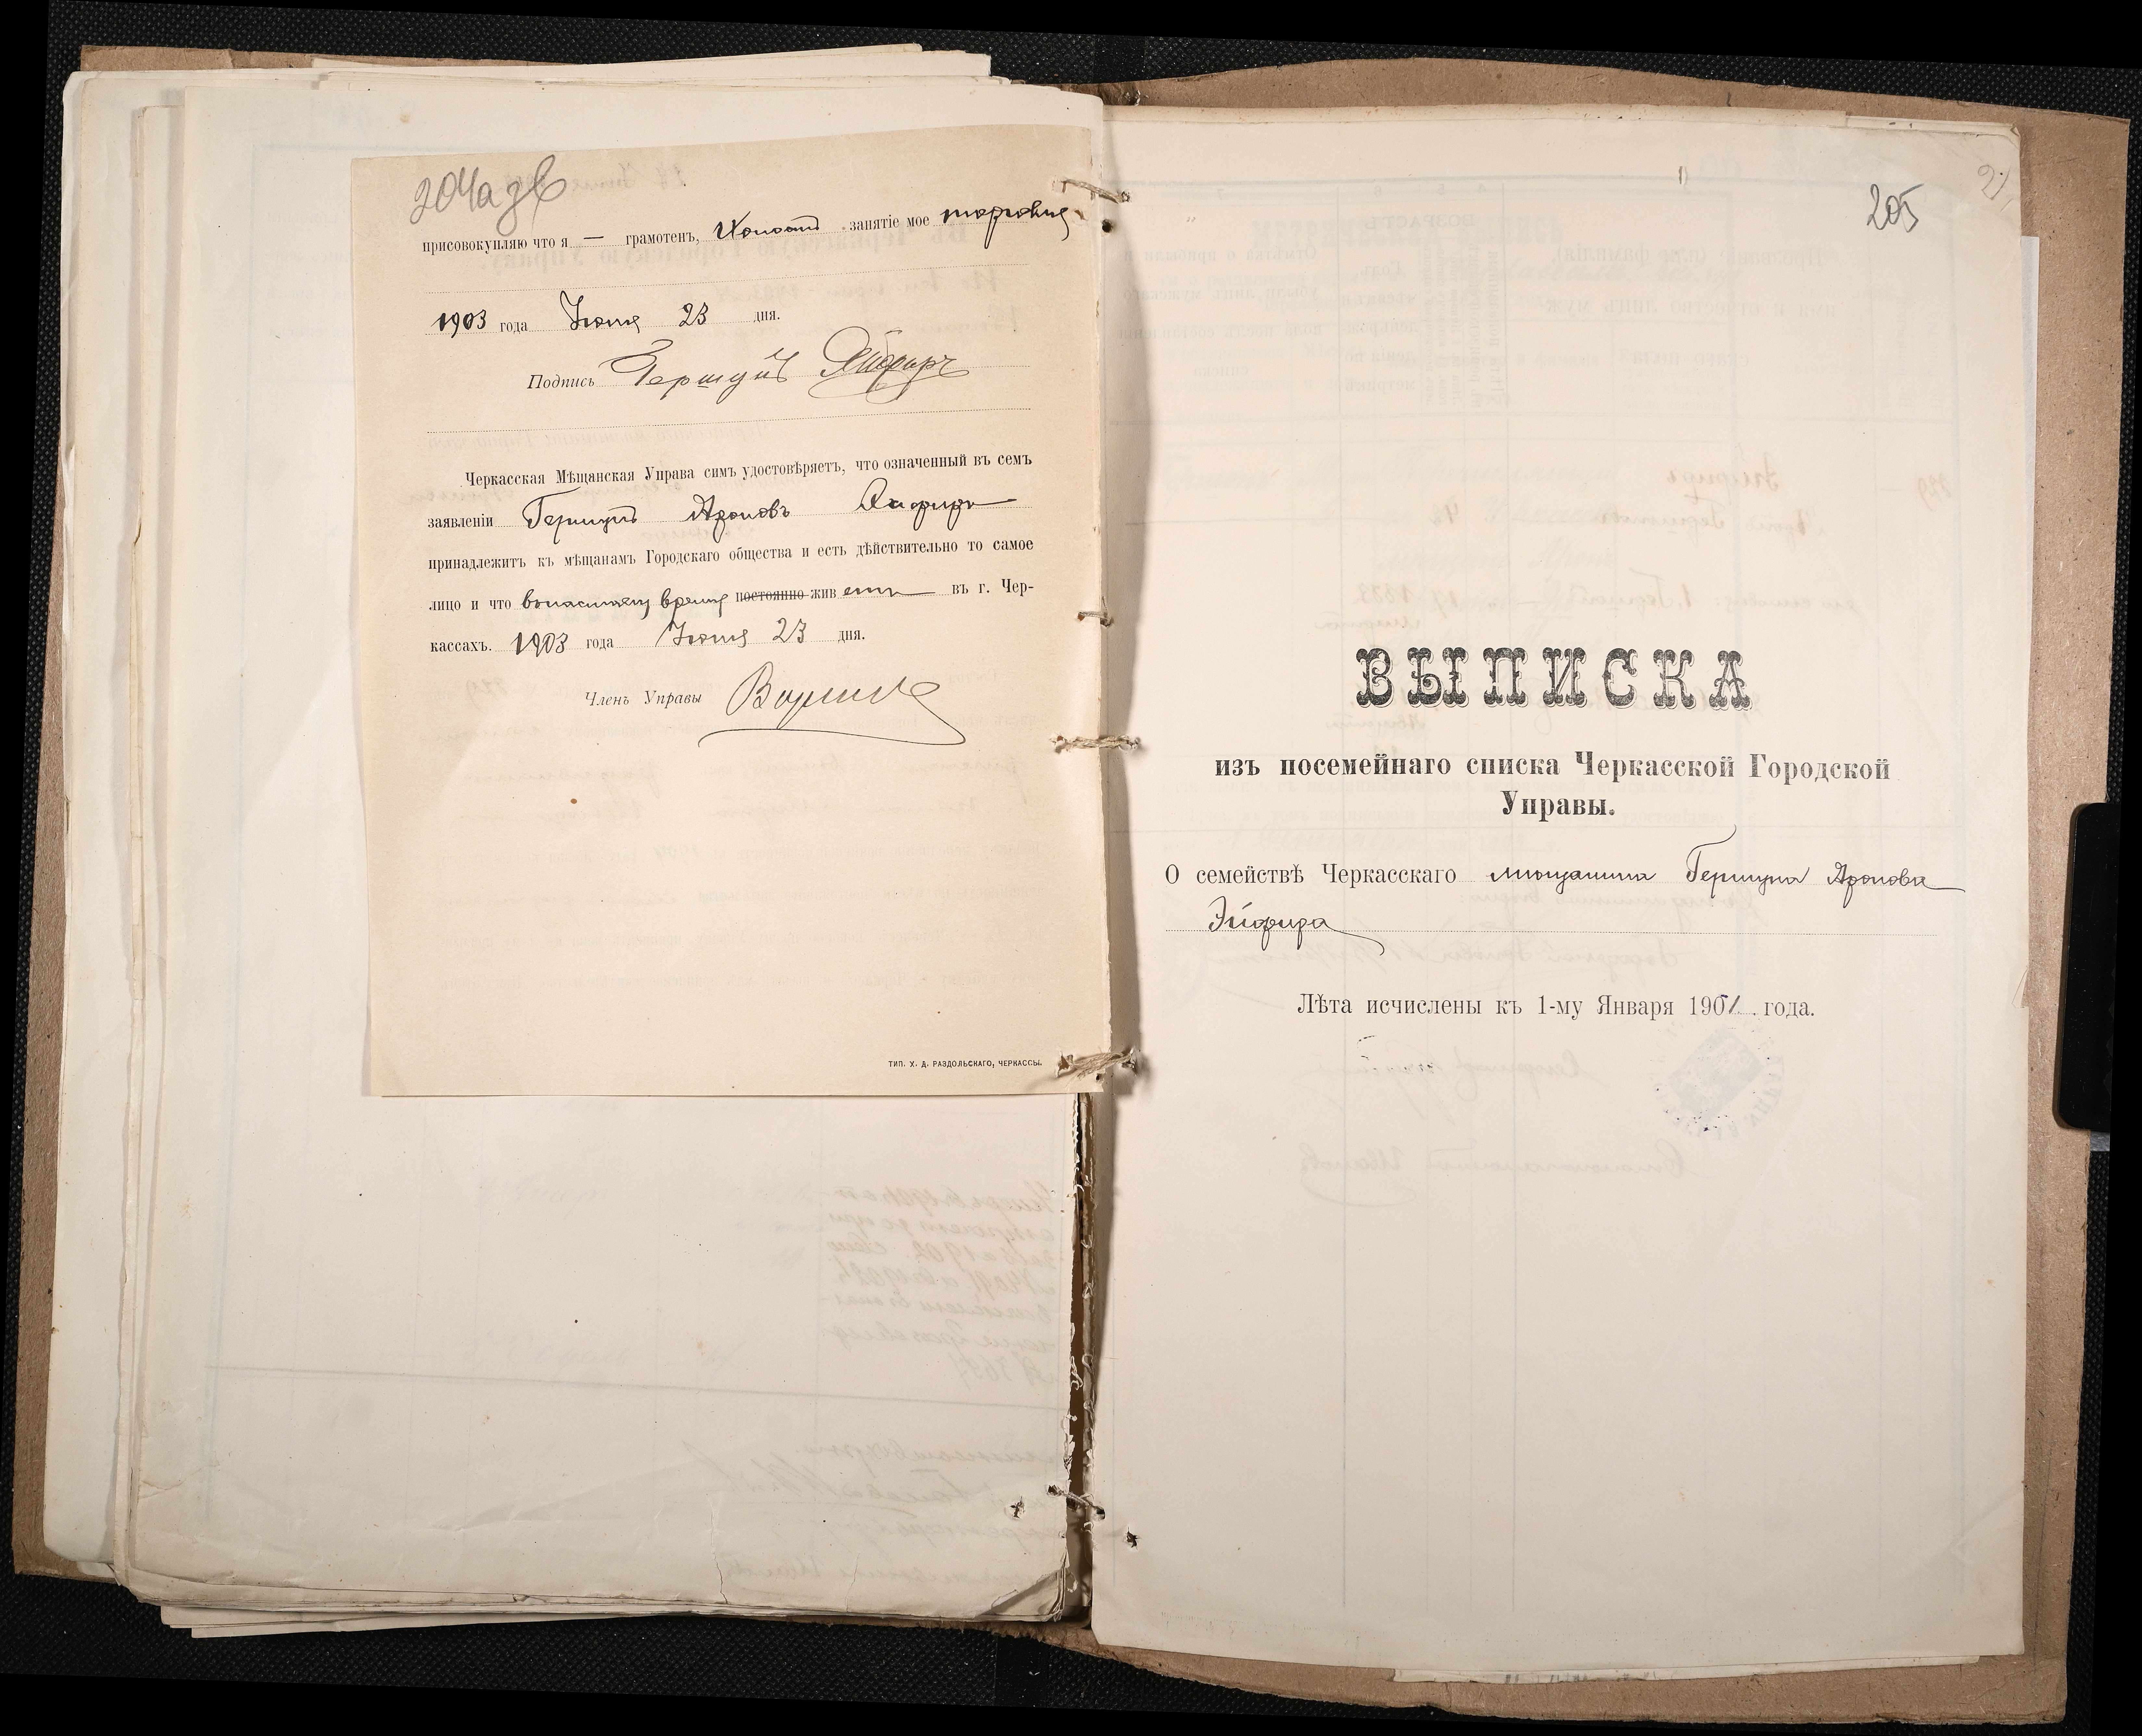 204а зв
присовокупляю что я — грамотенъ, Холостъ занятіе мое торговля
1903 года Іюня 23 дня.
Подпись Гершунъ Эйфиръ
Черкасская Мѣщанская Управа симъ удостовѣряетъ, что означенный въ семъ
заявленіи Гершунъ Ароновъ
принадлежитъ къ мѣщанам Городскаго общества и есть дѣйствительно то самое
лицо и что время постоянно жив етъ въ г. Чер-
кассахъ. 1903 года Іюня 23 дня.
Членъ Управы
ТИП. Х. Д. РАЗДОЛЬСКАГО, ЧЕРКАССЫ.
205
ВЫПИСКА
изъ посемейнаго списка Черкасской Городской
Управы.
О семействѣ Черкасскаго мѣщанина Гершуна Аронова
Эйфира
Лѣта исчислены къ 1-му Января 190 года.